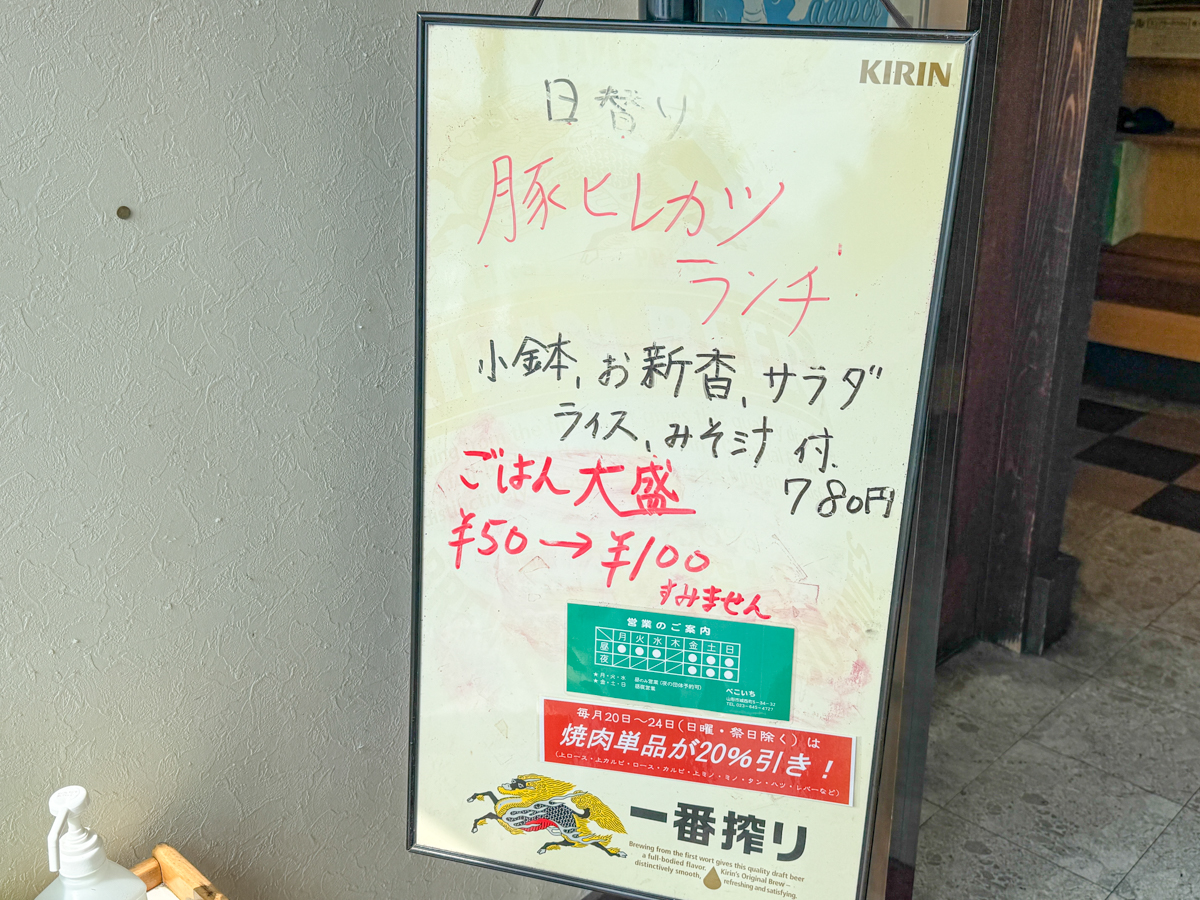 KIRIN
日替り
豚ヒレカツ
ランチ
小鉢、お新香、サラダ
ライス、みそ汁 付.
780円
ごはん大盛
¥50→¥100
すみません
営業のご案内
月 火 水 木 金 土 日
昼
夜
★月・火・水 昼のみ営業(夜の団体予約可)
★金・土・日 昼夜営業
べこいち
毎月20日～24日(日曜・祭日除く)は
焼肉単品が20%引き!
(上ロース・上カルビ・ロース・カルビ・上ミノ・ミノ・タン・ハツ・レバーなど)
一番搾り
Brewing from the first wort gives this quality draft beer
a full-bodied flavor.
distinctively smooth,
Kirin's Original Brew—
refreshing and satisfying.